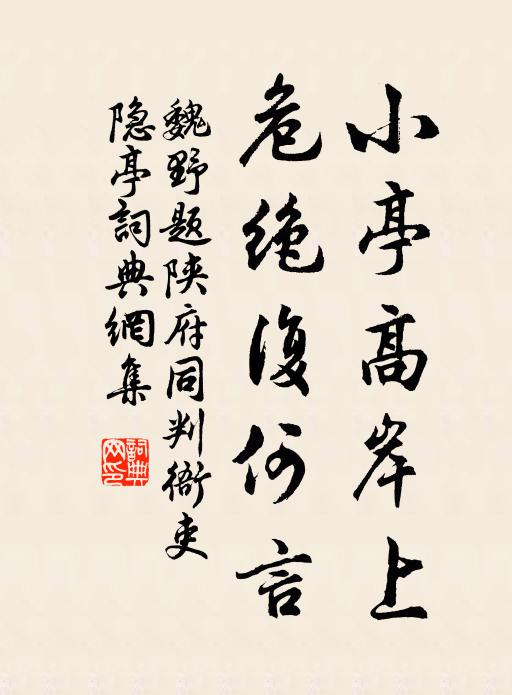 小亭高岸上
危绝復何言
魏野题陕府同判衙吏
隐亭詞典網集
詞典
网印